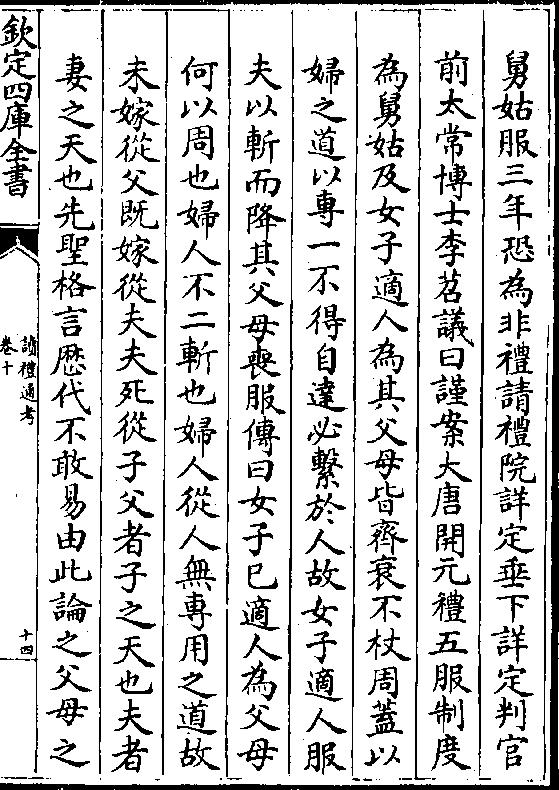 舅姑服三年恐為非禮請禮院詳定垂下詳定判官
前太常博士李苕議曰謹案大唐開元禮五服制度
為舅姑及女子適人為其父母皆齊衰不杖周蓋以
婦之道以專一不得自達必繫於人故女子適人服
夫以斬而降其父母喪服傳曰女子已適人為父母
何以周也婦人不二斬也婦人從人無專用之道故
未嫁從父既嫁從夫夫死從子父者子之天也夫者
妻之天也先聖格言歴代不敢易由此論之父母之
欽定四庫全書
讀禮通考
卷十
十四